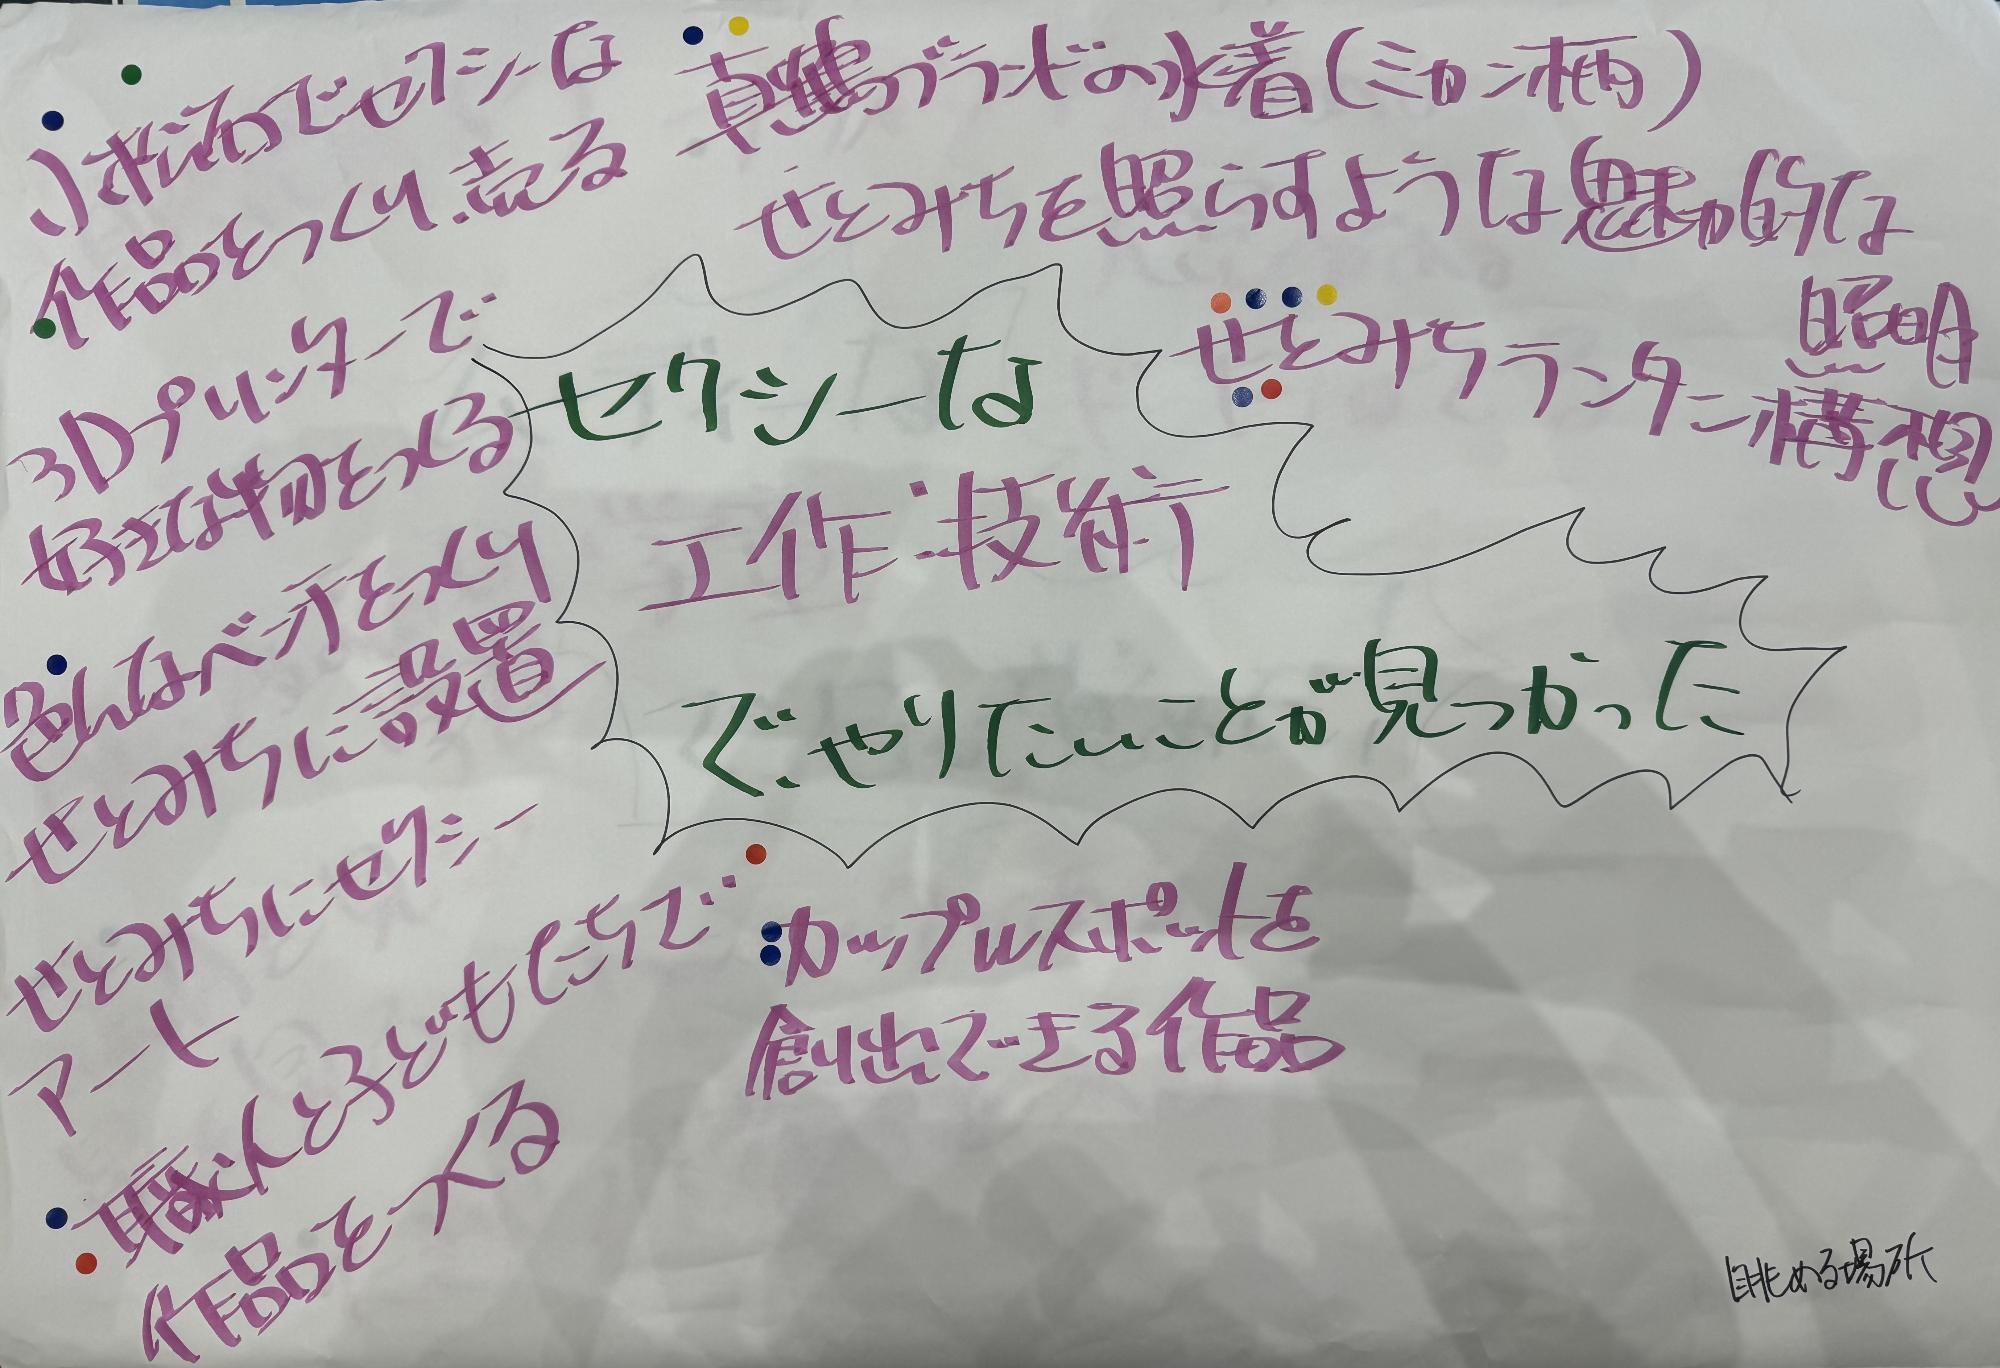 小ぶりでセクシーな
作品をつくり売る
3Dプリンターで
好きな物をつくる
色んなベンチをつくり
せとみちに設置
せとみちにセクシー
アート
職人と子どもたちで
作品をつくる
真鶴ブランドの水着(ミカン柄)
せとみちを照らすような魅力的な
照明
せとみちランタン構想
セクシーな
工作・技術
でやりたいことが見つかった
カップルスポットを
創出できる作品
眺める場所